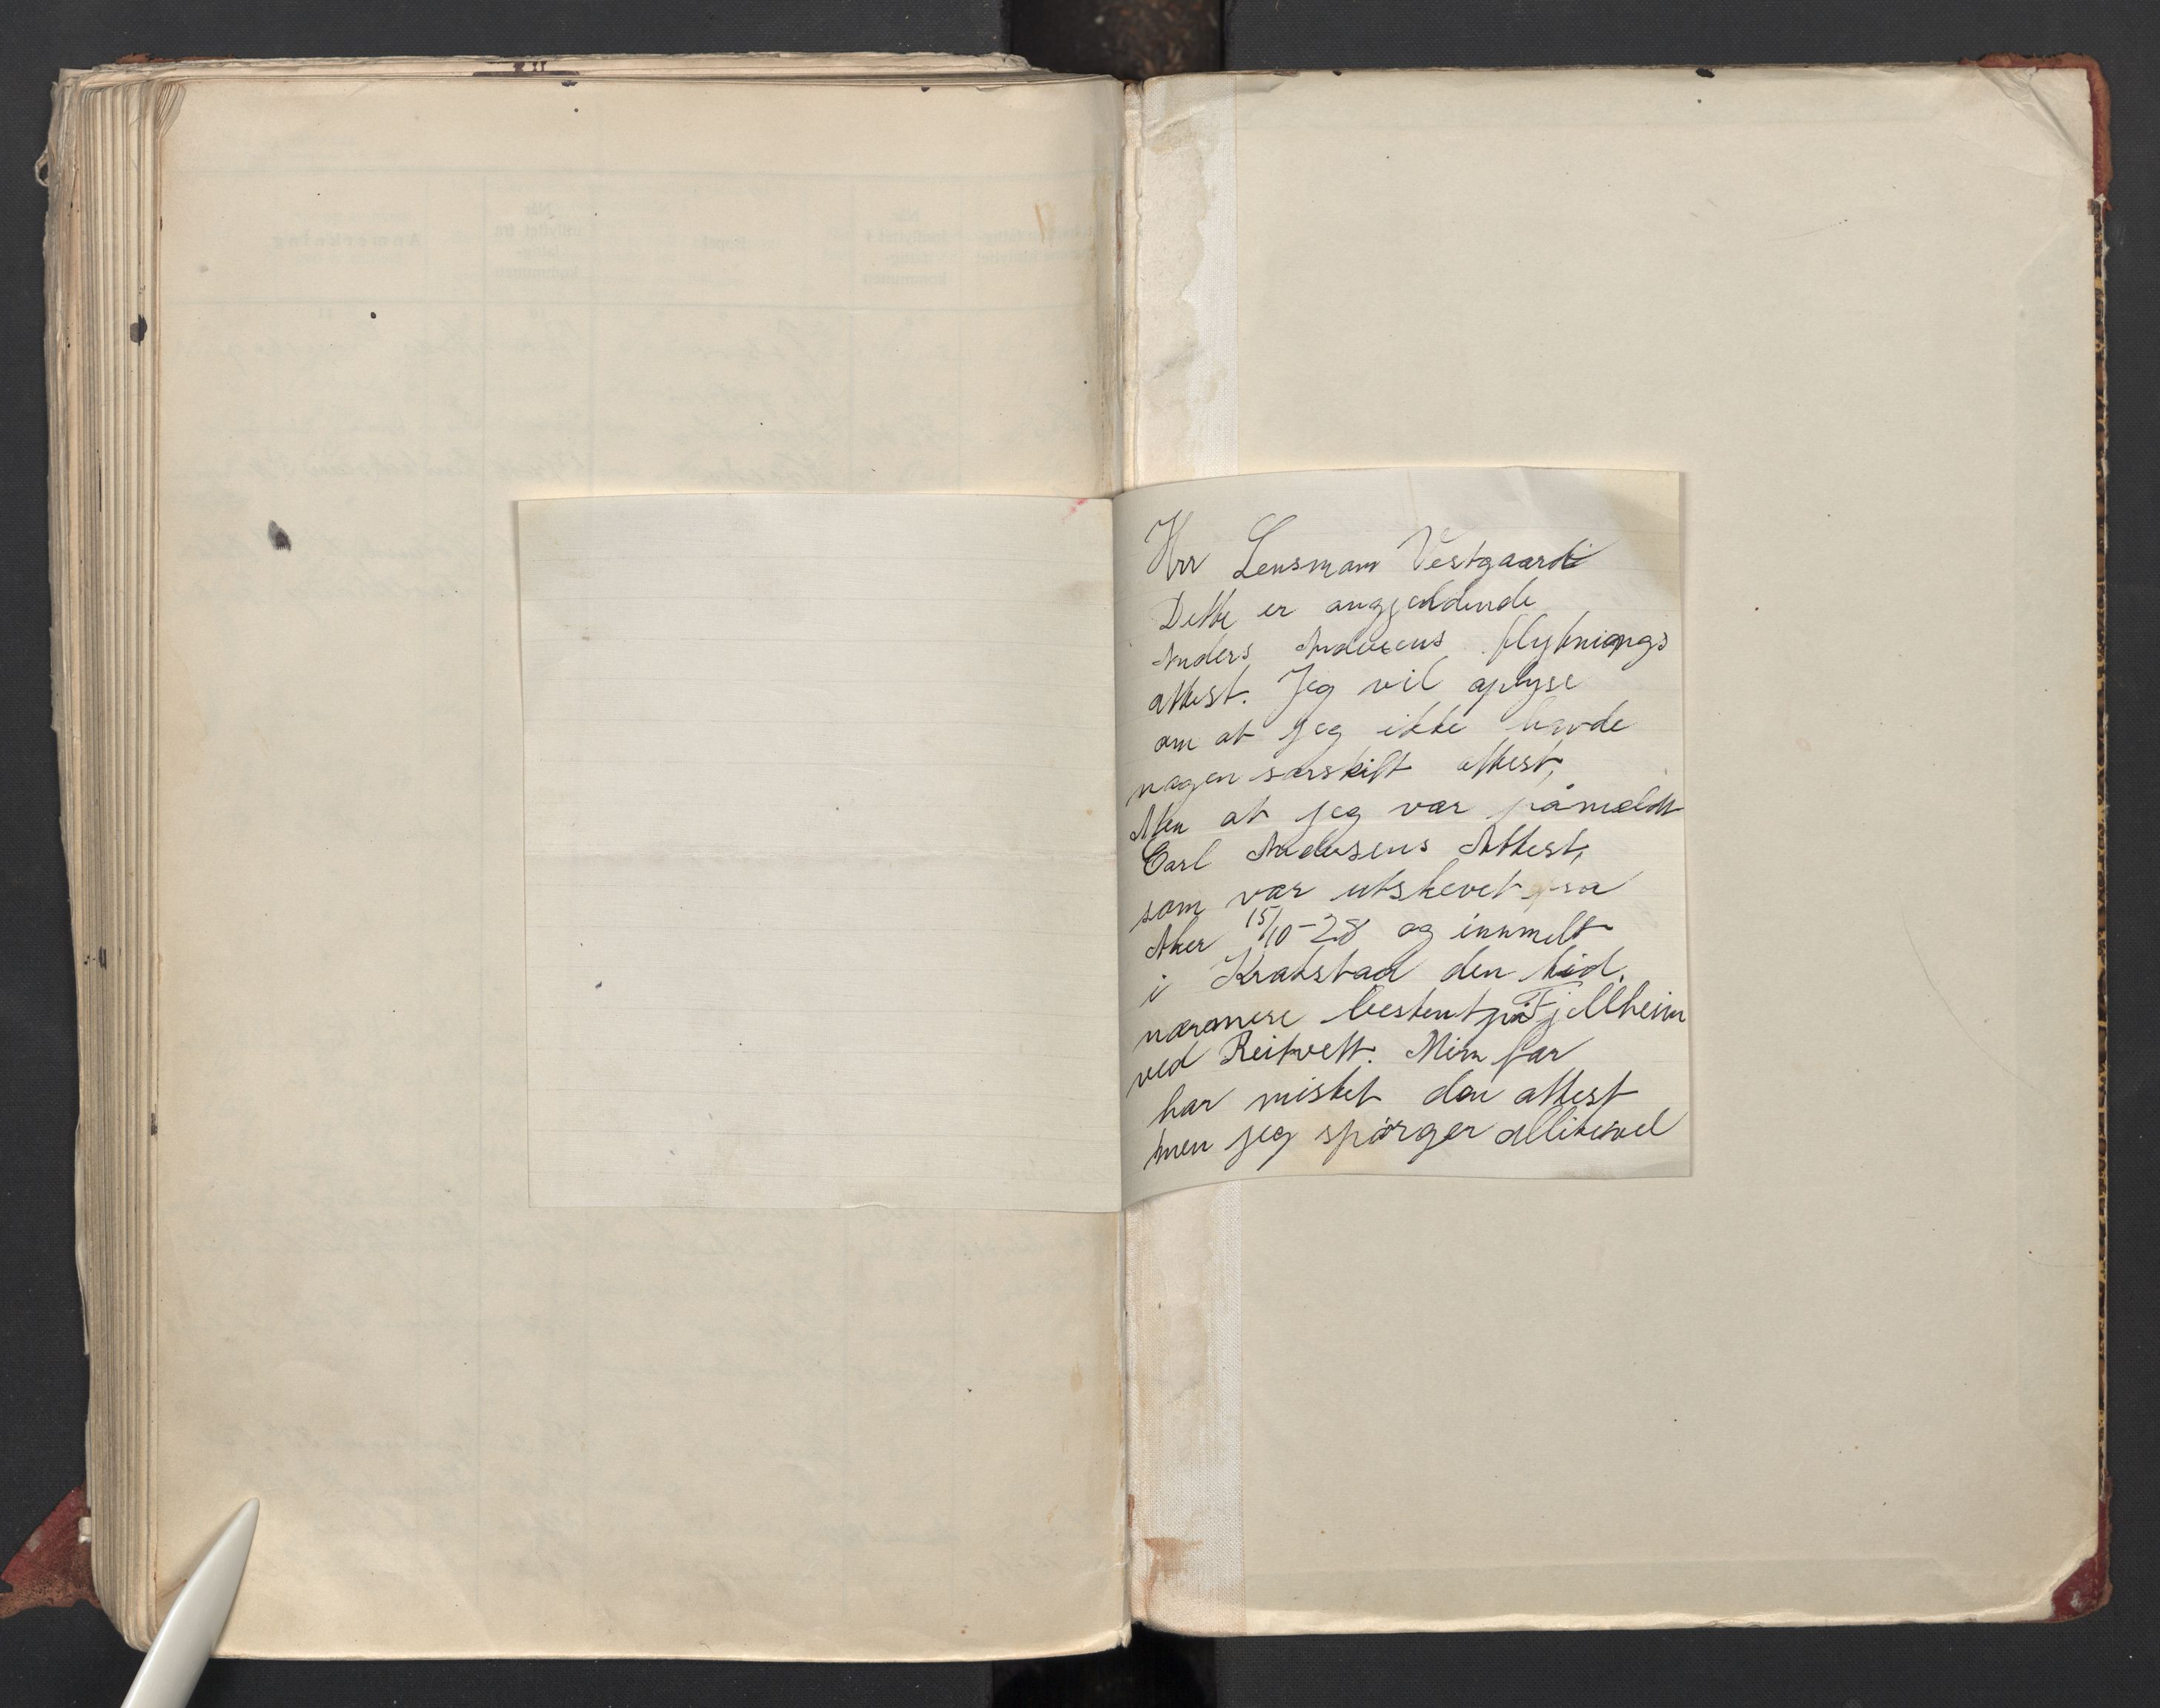 Hrr Lensmann Vestgaard
Dette er angjeldende
Anders Andersens flytnings
attest. Jeg vil oplyse
om at jeg ikke havde
nogen særskilt attest,
Men at jeg var påmeldt
Carl Andersens Attest,
som var utskevet fra
Aker 15/10-28 og innmelt
i Krakstad den tid,
nærmere bestemt på Fjellheim
ved Reitvett. Min far
har mistet den attest
men jeg spørger allikevel